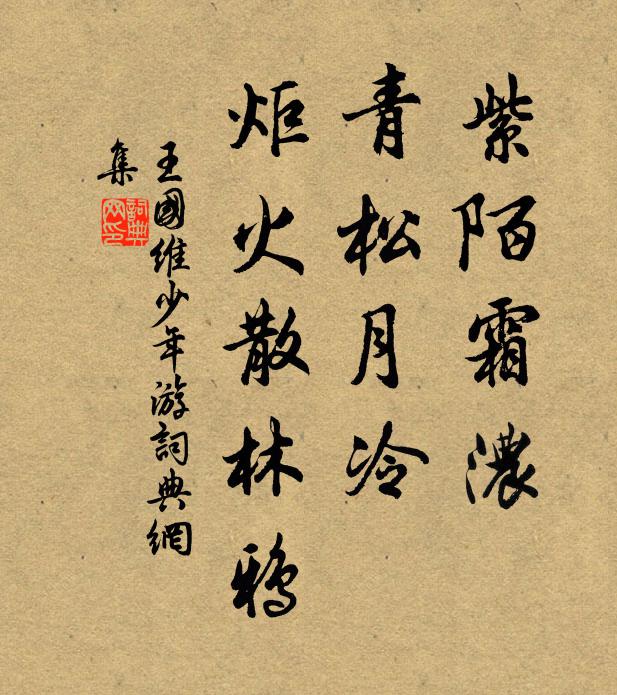 紫陌霜濃
青松月冷
炬火散林鴉
王國維少年游詞典網
集
詞典網印